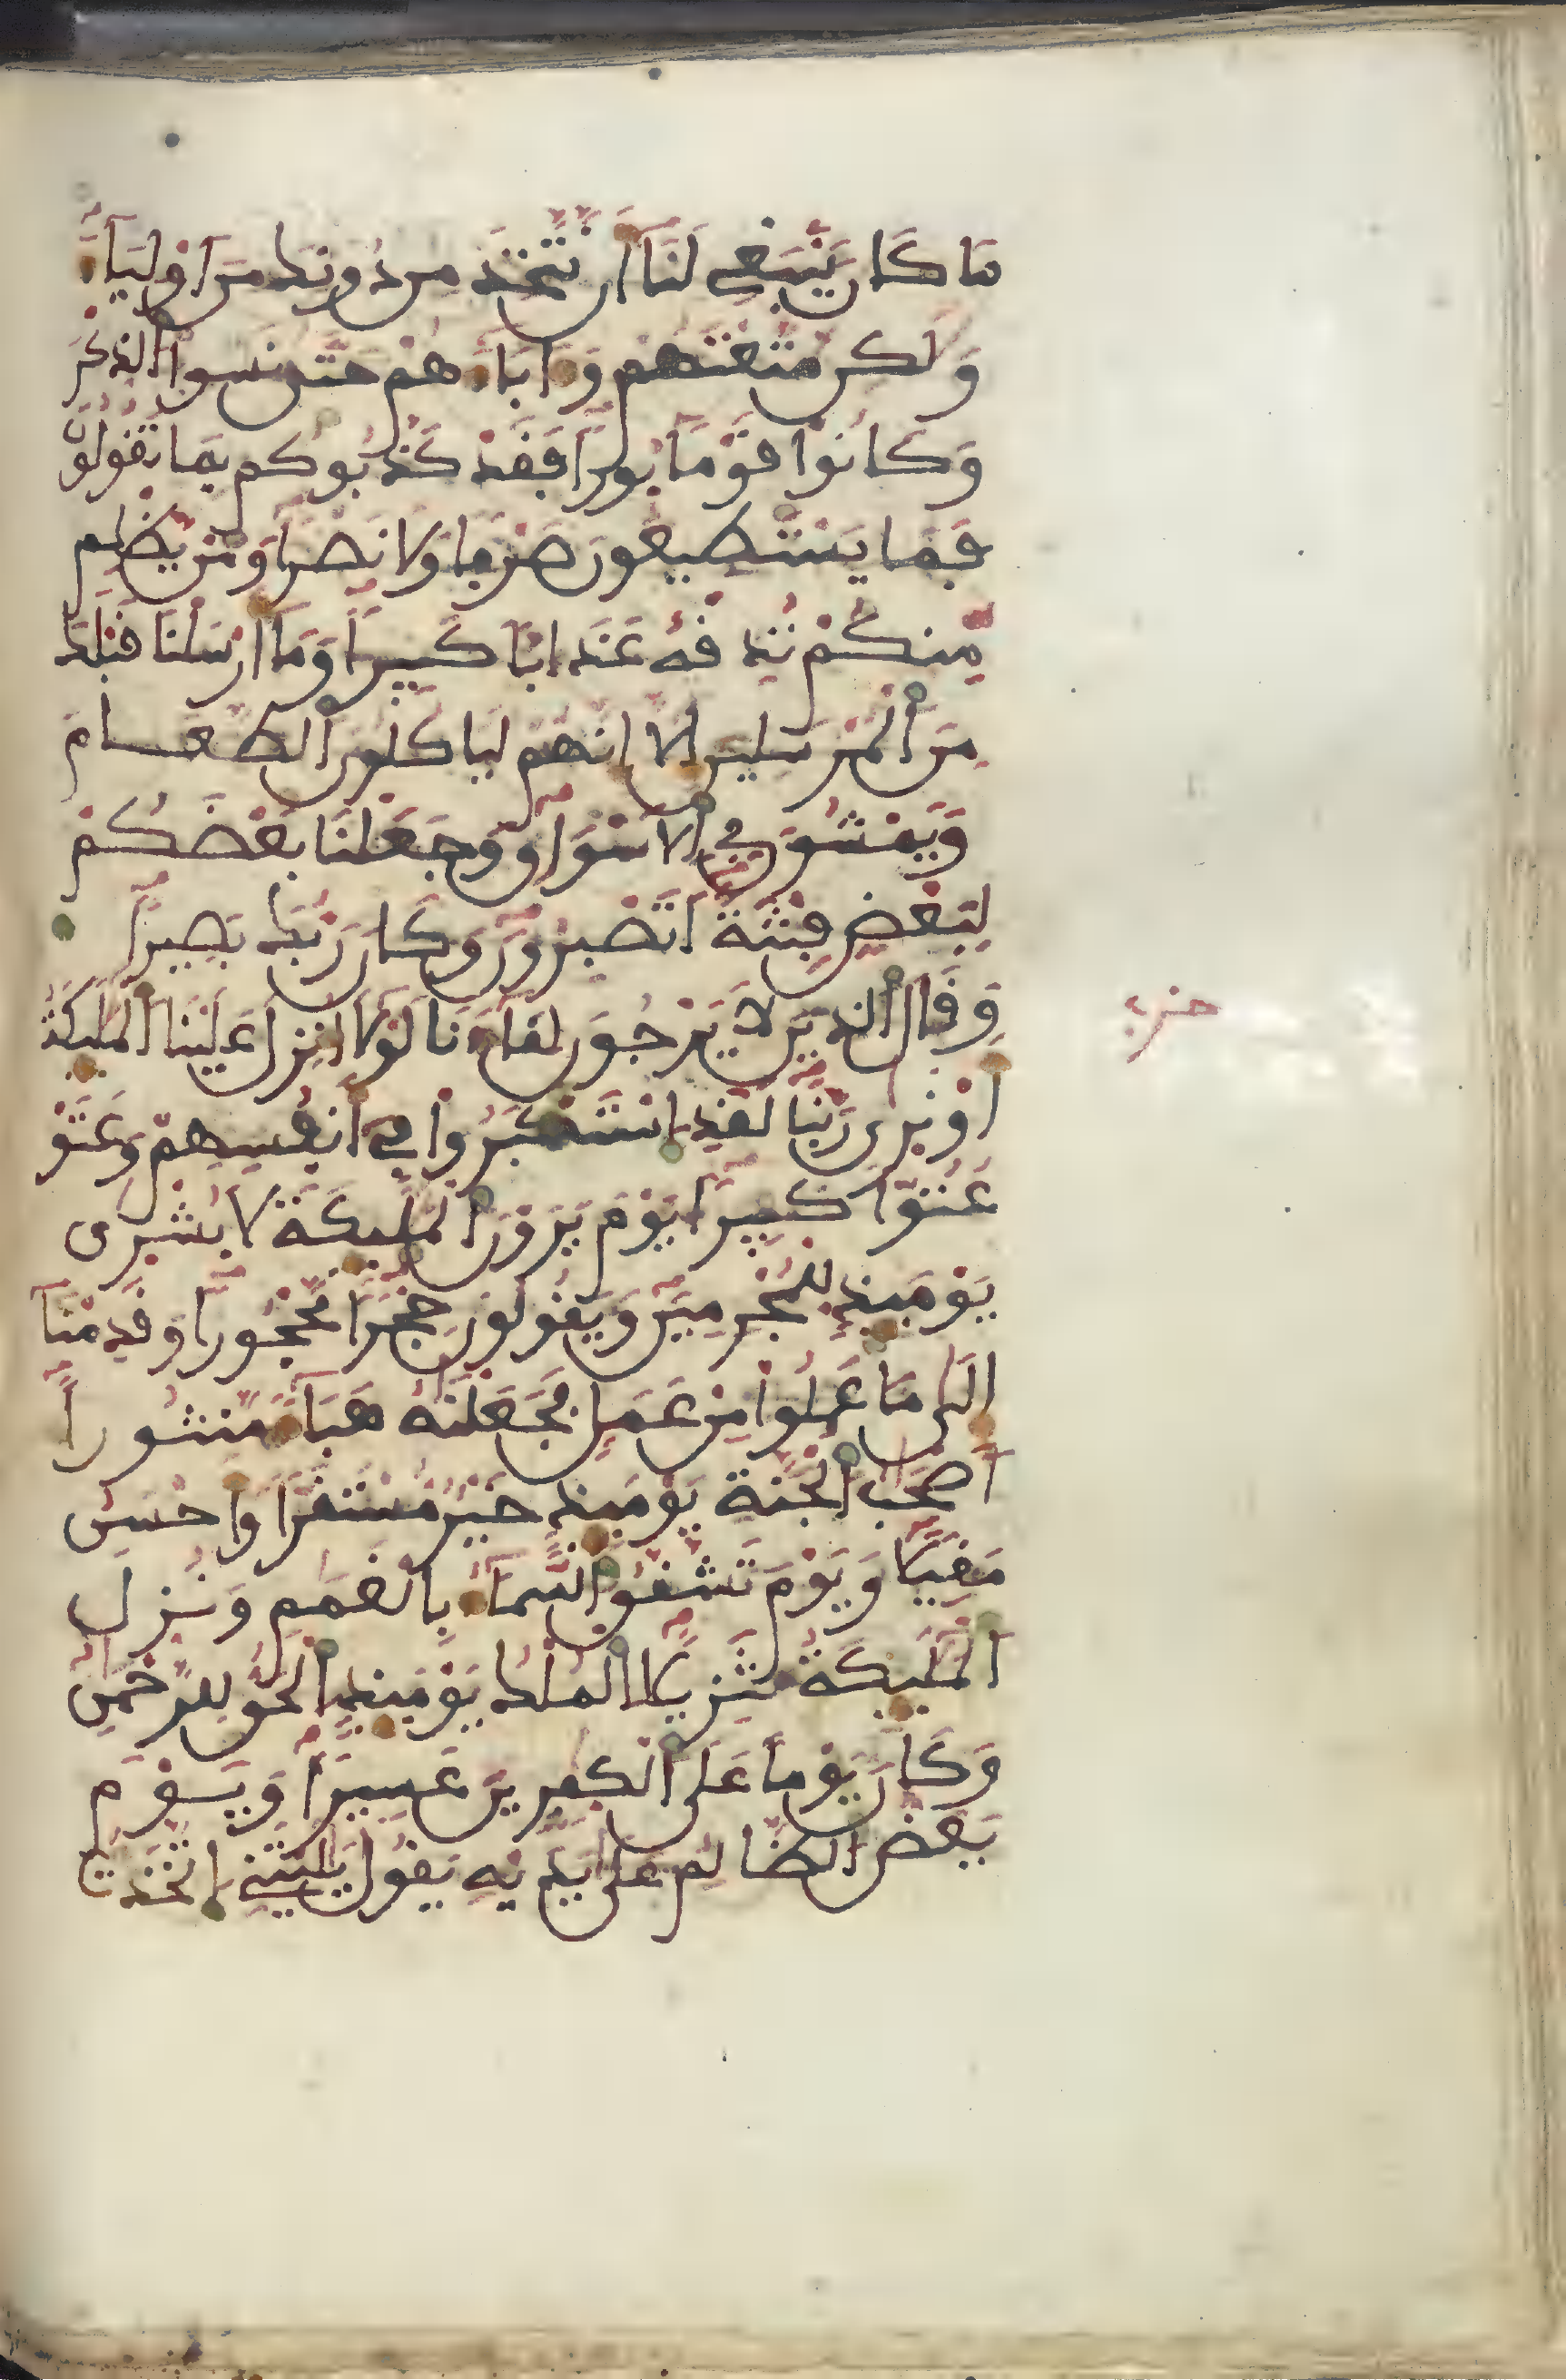 مَا كَانَ يَنۢبَغِے لَنَآ أَن نَّتَّخِذَ مِن دُونِكَ مِنَ اَوْلِيَآءَ
وَلَكِن مَّتَّعْتَهُمْ وَءَابَآءَهُمْ حَتَّى نَسُواْ الذِّكْرَ
وَكَانُواْ قَوْمَا بُوراً فَقَدْ كَذَّبُوكُم بِمَا تَقُولُونَ
فَمَا يَسْتَطِيعُونَ صَرْفا وَلَا نَصْراً وَمَنْ يَّظْلِم
مِّنكُمْ نُذِقْهُ عَذَابا كَبِيراً وَمَآ أَرْسَلْنَا قَبْلَكَ
مِنَ اَلْمُرْسَلِينَ إِلَّا إِنَّهُمْ لَيَاكُلُونَ اَلطَّعَامَ
وَيَمْشُونَ فِي اِلَاسْوَاقِ وَجَعَلْنَا بَعْضَكُمْ
لِبَعْضٍ فِتْنَةً اَتَصْبِرُونَ وَكَانَ رَبُّكَ بَصِيراً
وَقَالَ اَلذِينَ لَا يَرْجُونَ لِقَآءَنَا لَوْلَآ أُنزِلَ عَلَيْنَا اَلْمَلَٰٓئِكَةُ
حزب
أَوْ نَرَى رَبَّنَا لَقَدِ اِسْتَكْبَرُواْ فِےٓ أَنفُسِهِمْ وَعَتَوْ
عُتُوّاً كَبِيراً يَوْمَ يَرَوْنَ اَلْمَلَٰٓئِكَةَ لَا بُشْرَى
يَوْمَئِذٍ لِّلْمُجْرِمِينَ وَيَقُولُونَ حِجْراً مَّحْجُوراً وَقَدِمْنَآ
إِلَى مَا عَمِلُواْ مِنْ عَمَلٍ فَجَعَلْنَهُ هَبَآءً مَّنثُوراً
أَصْحَبُ اُلْجَنَّةِ يَوْمَئِذٍ خَيْرٌ مُّسْتَقَرّاً وَأَحْسَنُ
مَقِيلًا وَيَوْمَ تَشَّقَّقُ اُلسَّمَآءُ بِالْغَمَمِ وَنُزِّلَ
اَلْمَلَٰٓئِكَةُ تَنزِيلًا اِلْمُلْكُ يَوْمَئِذٍ اِلْحَقُّ لِلرَّحْمَنِ
وَكَانَ يَوْماً عَلَى اَلْكَفِرِينَ عَسِيراً وَيَوْمَ
يَعَضُّ اُلظَّالِمُ عَلَى يَدَيْهِ يَقُولُ يَلَيْتَنِے اِتَّخَذتُّ